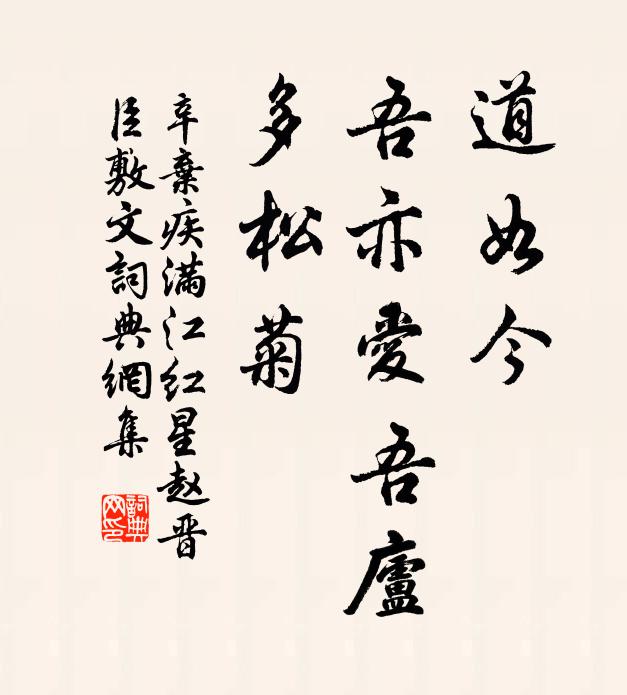 道如今
吾亦愛吾廬
多松菊
辛棄疾滿江紅星赵晋
臣敷文詞典網集
詞典
网印